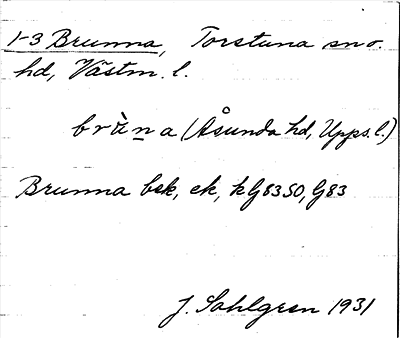 1-3 Brunna, Torstuna sn o.
hd, Västm. l.
brùna (Åsunda hd, Upps. l.)
Brunna bek, ek, kG83SO, G83
J. Sahlgren 1931